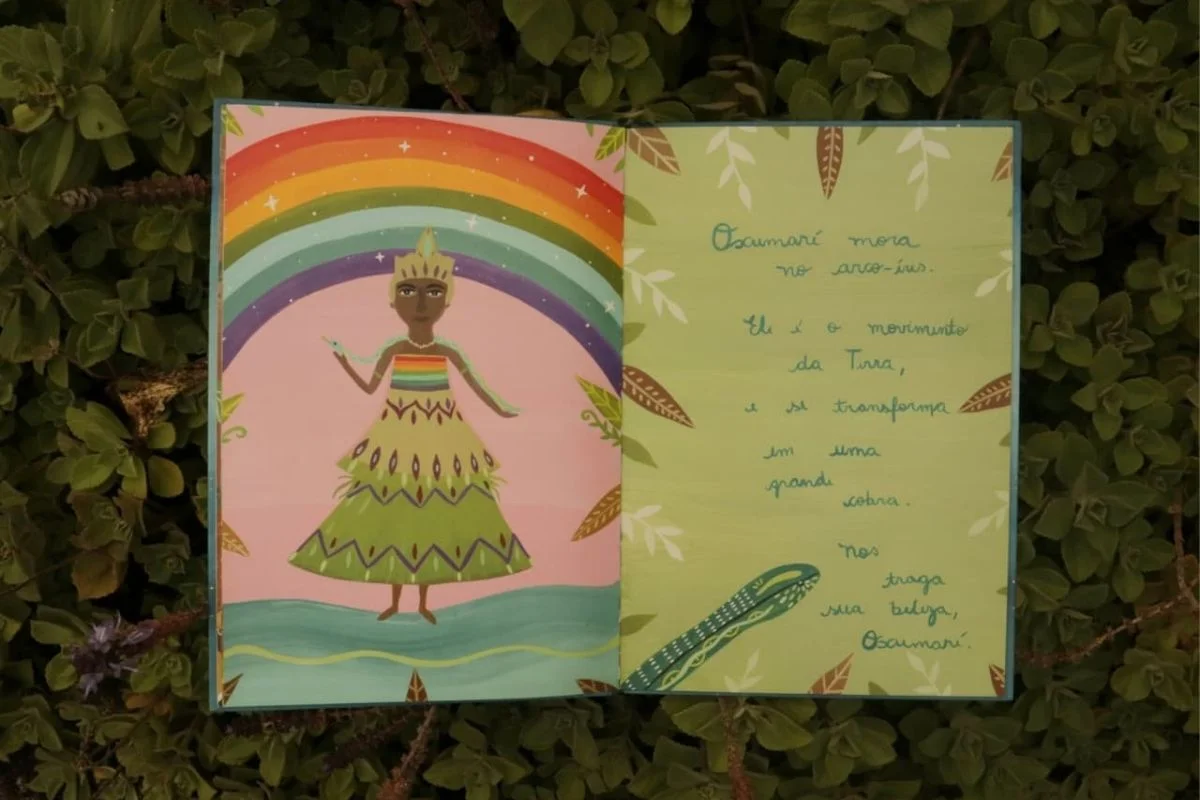 Oxumaré mora
no arco-íris.
Ele é o movimento
da Terra,
e se transforma
em uma
grande
cobra.
Nos
traga
sua beleza,
Oxumaré.